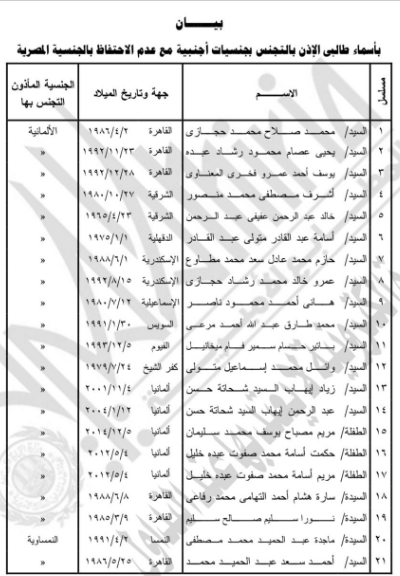 بيـــان
بأسماء طالبى الإذن بالتجنس بجنسيات أجنبية مع عدم الاحتفاظ بالجنسية المصرية
مسلسل الاســـم جهة وتاريخ الميلاد الجنسية المأذون التجنس بها
١ السيد/ محمد صلاح محمد حجازى القاهرة ١٩٨٦/٤/٢ الألمانية
٢ السيد/ يحيى عصام محمود رشاد عبده القاهرة ١٩٩٢/١١/٢٣ »
٣ السيد/ يوسف أحمد عمرو فخرى المعناوى القاهرة ١٩٩٢/١٢/٢٨ »
٤ السيد/ أشرف مصطفى محمد منصور الشرقية ١٩٨٠/١٠/٢٧ »
٥ السيد/ خالد عبد الرحمن عفيفى عبد الرحمن الشرقية ١٩٦٥/٤/٢٣ »
٦ السيد/ أسامة عبد القادر متولى عبد القادر الدقهلية ١٩٧٥/١/١ »
٧ السيد/ حازم محمد عادل سعد محمد مطاوع الإسكندرية ١٩٨٨/٦/١ »
٨ السيد/ عمرو خالد محمد رشاد حجازى الإسكندرية ١٩٩٢/٨/١٥ »
٩ السيد/ هانى أحمد محمود ناصر الإسماعيلية ١٩٨٠/٧/١٢ »
١٠ السيد/ محمد طارق عبد الله أحمد مرعى السويس ١٩٩١/١/٣٠ »
١١ السيد/ حسام سمير فام ميخائيل الفيوم ١٩٩٣/١٢/٥ »
١٢ السيد/ وائل محمد إسماعيل متولى كفر الشيخ ١٩٧٩/٧/٢٤ »
١٣ السيد/ زياد إيهاب السيد شحاتة حسن ألمانيا ٢٠٠١/١١/٤ »
١٤ السيد/ عبد الرحمن إيهاب السيد شحاتة حسن ألمانيا ٢٠٠٤/١/١٢ »
١٥ الطفلة/ مريم مصباح يوسف محمد سليمان ألمانيا ٢٠١٤/١٢/٥ »
١٦ الطفلة/ حكمت أسامة محمد صفوت عبده خليل ألمانيا ٢٠١٢/٥/٤ »
١٧ الطفلة/ مريم أسامة محمد صفوت عبده خليل ألمانيا ٢٠١٢/٥/٤ »
١٨ السيدة/ سارة هشام أحمد التهامى محمد رفاعى القاهرة ١٩٨٨/٦/٨ »
١٩ السيدة/ نورا سليم صالح سليم القاهرة ١٩٨٥/٣/٩ »
٢٠ السيدة/ ماجدة عبد الحميد محمد مصطفى النمسا ١٩٩١/٤/٢ النمساوية
٢١ السيد/ أحمد سعد عبد الحميد محمد القاهرة ١٩٨٦/٥/٢٥ »